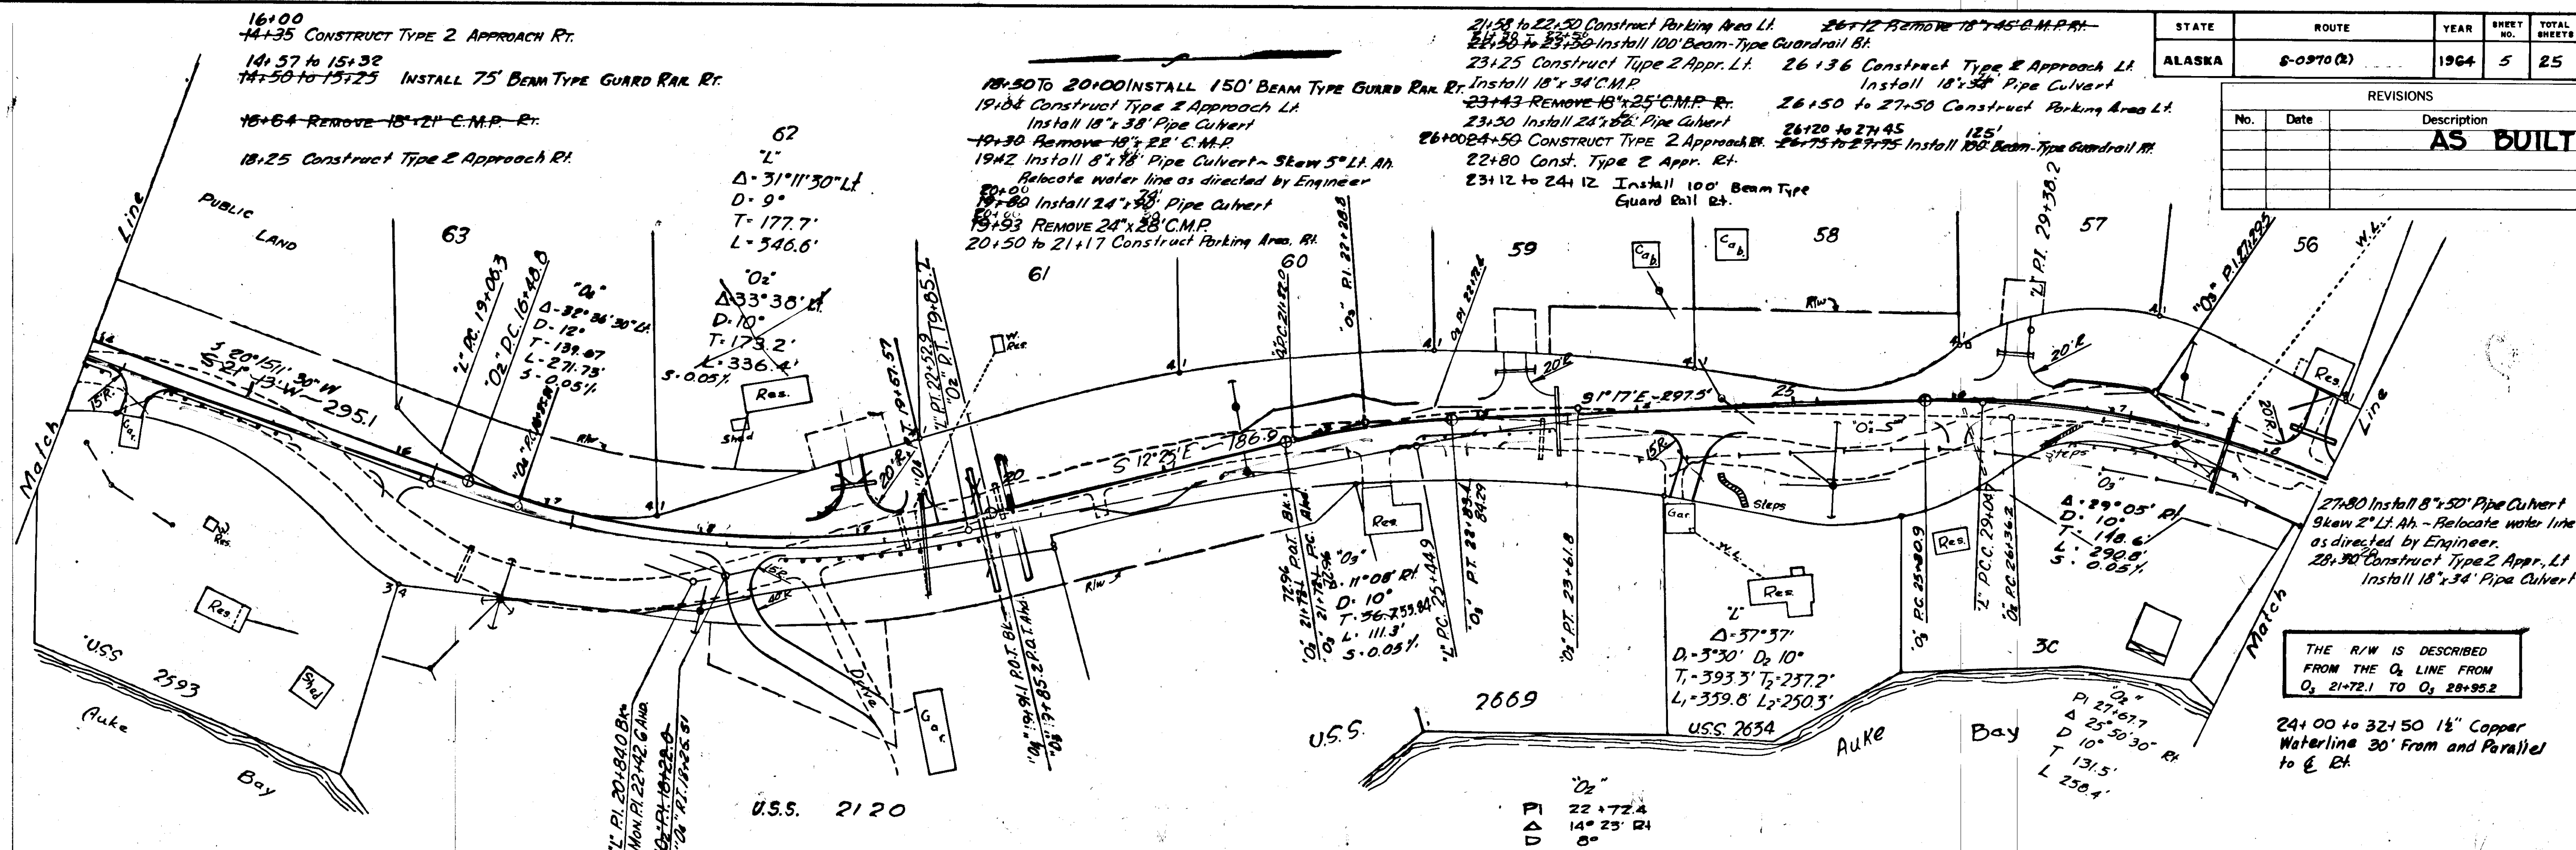 16+00
14+35 CONSTRUCT TYPE 2 APPROACH RT.
14+57 to 15+32
14+50 to 15+25 INSTALL 75' BEAM TYPE GUARD RAIL RT.
16+64 REMOVE 18"x21' C.M.P. RT.
18+25 Construct Type 2 Approach Rt.
18+50 TO 20+00 INSTALL 150' BEAM TYPE GUARD RAIL RT.
Construct Type 2 Approach Lt.
Install 18"x 38' Pipe Culvert
19+30 Remove 18"x 22' C.M.P.
19+42 Install 8"x Pipe Culvert ~ Skew 5° Lt. Ah.
Relocate water line as directed by Engineer
20+00
Install 24"x Pipe Culvert
19+93 REMOVE 24"x C.M.P.
20+50 to 21+17 Construct Parking Area, Rt.
21+58 to 22+50 Construct Parking Area Lt.
22+50 to 23+50 Install 100' Beam-Type Guardrail Rt.
23+25 Construct Type 2 Appr. Lt.
Install 18"x 34' C.M.P.
23+43 REMOVE 18"x25' C.M.P. Rt.
23+50 Install 24"x Pipe Culvert
26+00 24+50 CONSTRUCT TYPE 2 Approach Rt.
22+80 Const. Type 2 Appr. Rt.
23+12 to 24+12 Install 100' Beam Type
Guard Rail Rt.
26+12 Remove 18"x45' C.M.P. Rt.
26+36 Construct Type 2 Approach Lt.
Install 18"x Pipe Culvert
26+50 to 27+50 Construct Parking Area Lt.
26+20 to 27+45 125'
26+75 to 27+75 Install 100' Beam-Type Guardrail Rt.
STATE ROUTE YEAR SHEET NO. TOTAL SHEETS
ALASKA S-0970(2) 1964 5 25
REVISIONS
No. Date Description
AS BUILT
Match Line
PUBLIC
LAND
63
62
"L"
Δ=31°11'30" Lt
D=9°
T=177.7'
L=346.6'
"O2"
Δ33°38' Lt
D=10°
T=173.2'
L=336.4'
S=0.05%
Δ-32°36'30" Lt.
D-12°
T-139.67
L-271.73'
S-0.05%
61
60
59
58
57
56
"L" P.C. 19+06.3
"O2" P.C. 16+48.8
S 20°15'11'30" W
S 21° 13' W — 295.1
"L" P.T. 22+52.9
"O2" P.T. 19+85.2
P.T. 19+57.57
W.
Res.
Res.
Shed
R/W
20'R
S 12°25' E — 186.9
P.C. 21+82.0
"O3" P.I. 22+28.8
O2 PI 22+72.4
Cab.
Cab.
R/W
S 1°17' E - 297.5'
20'R
"L" P.I. 29+38.2
"O3" P.I. 27+29.5
W.L.
Res.
20'R
Match Line
15'R.
Gar.
W.
Res.
Res.
Shed
U.S.S.
2593
Auke
Bay
3
4
15R
40'R
DWN
Gar
R/W
"L" P.I. 20+84.0 BK=
MON. P.I. 22+42.6 AHD.
"O2" P.I. 18+22.0
P.I. 18+25.51
19+91.1 P.O.T. BK=
19+85.2 P.O.T. Ahd.
U.S.S. 2120
"O2" 21+72.1 P.O.T. BK=
"O3" 21+72.1 P.C. Ahd.
72.96
Res
"O3"
Δ=11°08' Rt
D=10°
T=56.2 55.84
L=111.3'
S=0.05%
"L" P.C. 25+44.9
"O3" P.T. 22+83.4
84.29
"O3" P.T. 23+61.8
15R
Gar
Steps
W.L.
Res
"L"
Δ=37°37'
D₁=3°30' D₂ 10°
T₁=393.3' T₂=237.2'
L₁=359.8' L₂=250.3'
U.S.S.
2669
U.S.S. 2634
Auke
Bay
"O3" P.C. 25+80.9
"L" P.C.C. 29+04.7
O2 P.C. 26+36.2
Res.
steps
"O3"
Δ=29°05' Rt
D=10°
T=148.6'
L=290.8'
S=0.05%
3C
"O2"
PI 27+67.7
Δ 25°50'30" Rt
D 10°
T 131.5'
L 258.4'
"O2"
PI 22+72.4
Δ 14°23' Rt
D 8°
27+80 Install 8"x50' Pipe Culvert
Skew 2° Lt. Ah ~ Relocate water line
as directed by Engineer.
Construct Type 2 Appr., Lt
Install 18"x34' Pipe Culvert
THE R/W IS DESCRIBED
FROM THE O2 LINE FROM
O3 21+72.1 TO O3 28+95.2
24+00 to 32+50 1½" Copper
Waterline 30' From and Parallel
to ℄ Rt.